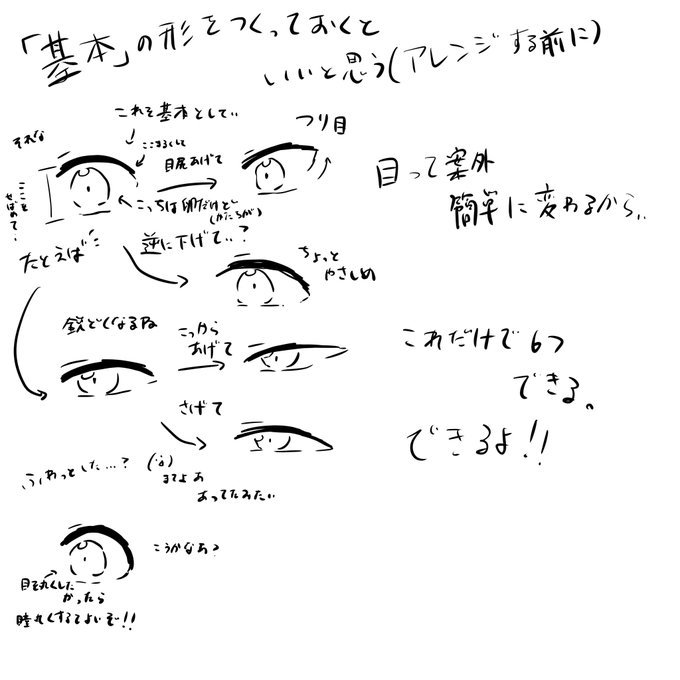 「基本」の形をつくっておくと
いいと思う(アレンジする前に)
これを基本として..
ここまるくして
目尻あげて
つり目
目って案外
簡単に変わるから..
ここを
せばめて..
こっちは卵だけど
(かたちが)
たとえば
逆に下げて..?
ちょっと
やさしめ
鋭どくなるね
こっから
あげて
さげて
これだけで6つ
できる。
できるよ!!
ふわっとした...?
あってたみたい
こうかなあ?
目を丸くした
かったら
瞳丸くするてよいぞ!!